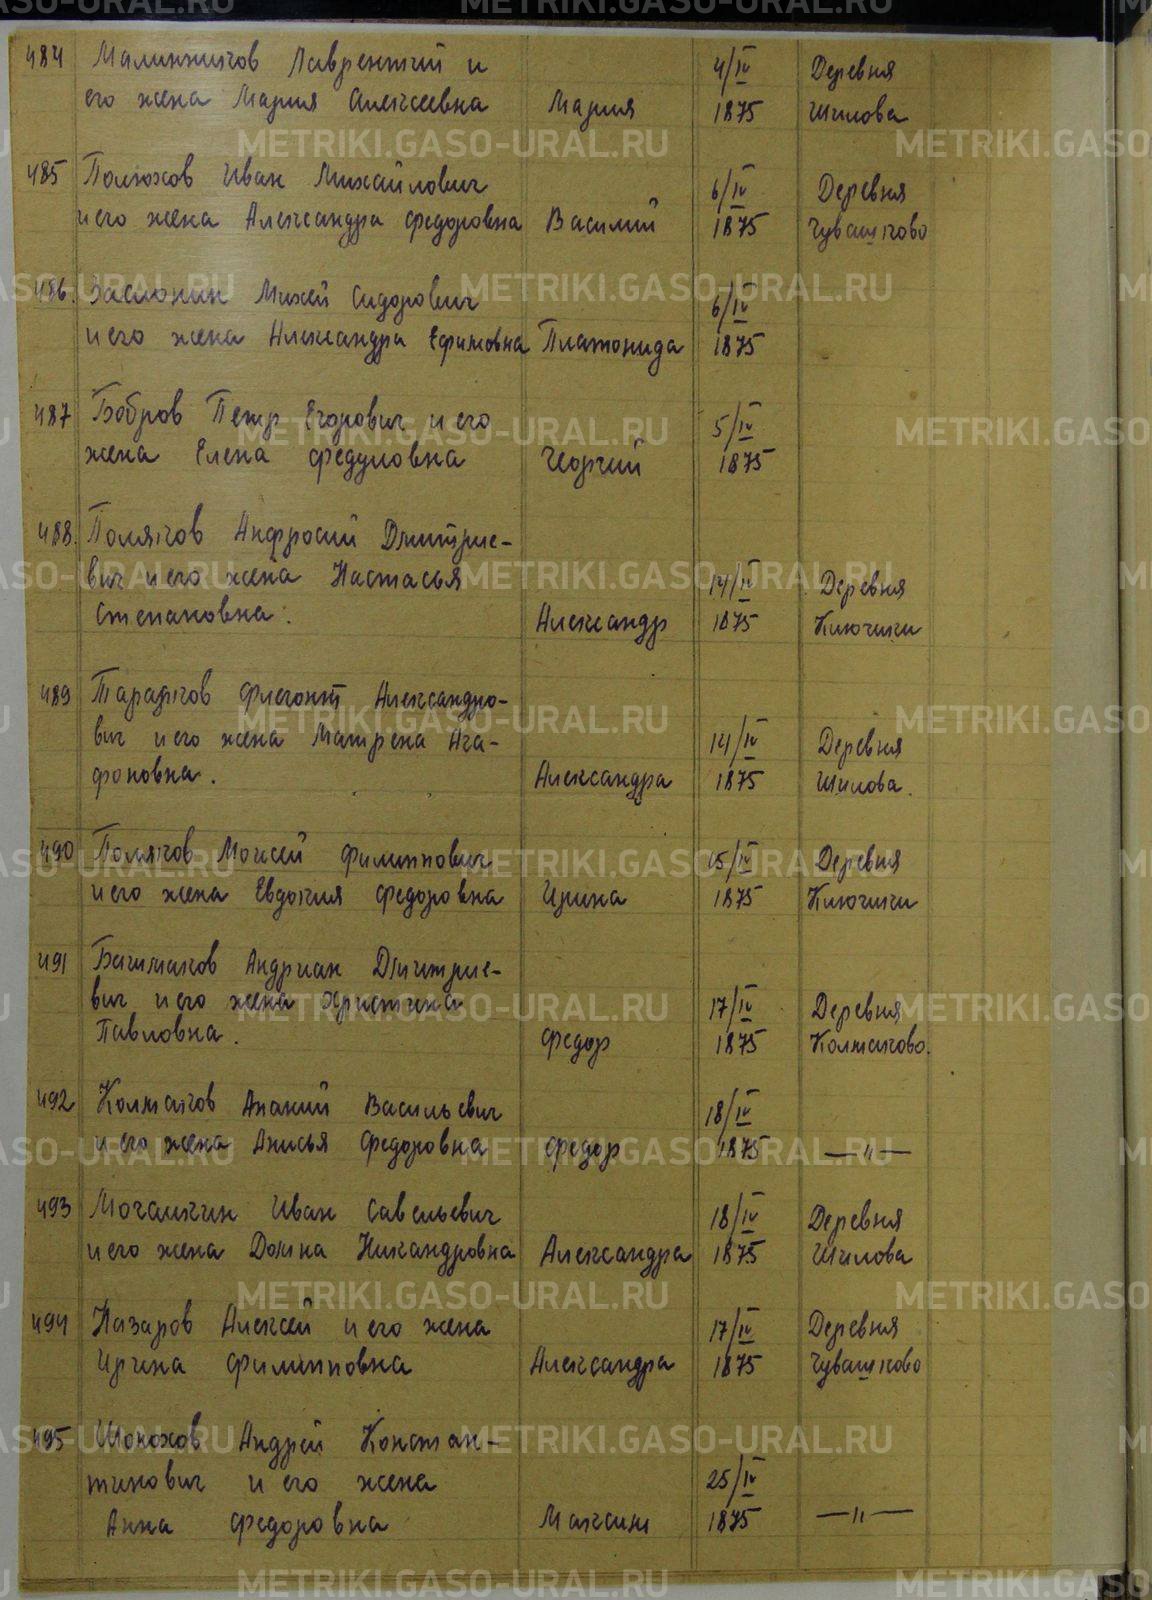 484 Малинников Лаврентий и 4/IV Деревня
его жена Мария Алексеевна Мария 1875 Шилова
485 Полюхов Иван Михайлович 6/IV Деревня
и его жена Александра Федоровна Василий 1875 Чувашково
486. Заслонин Михей Сидорович 6/IV
и его жена Александра Ефимовна Платонида 1875
487 Бобров Петр Егорович и его 5/IV
жена Елена Федуловна Георгий 1875
488. Поляков Анфросий Дмитрие-
вич и его жена Настасья 14/IV Деревня
Степановна. Александр 1875 Ключики
489 Флегонт Александро-
вич и его жена Матрена Ага- 14/IV Деревня
фоновна. Александра 1875 Шилова.
490 Поляков Моисей Филиппович 15/IV Деревня
и его жена Евдокия Федоровна Ирина 1875 Ключики
491 Андриан Дмитрие-
вич и его жена Христина 17/IV Деревня
Павловна. Федор 1875 Колмаково.
492 Колмаков Анакий Васильевич 18/IV
и его жена Анисья Федоровна Федор 1875 —„—
493 Иван Савельевич 18/IV Деревня
и его жена Домна Никандровна Александра 1875 Шилова
494 Назаров Алексей и его жена 17/IV Деревня
Ирина Филипповна Александра 1875 Чувашково
495 Шонохов Андрей Констан-
тинович и его жена 25/IV
Анна Федоровна Максим 1875 —„—
METRIKI.GASO-URAL.RU